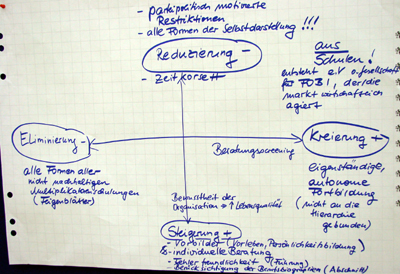 - parteipolitisch motivierte
Restriktionen
- alle Formen der Selbstdarstellung !!!
Reduzierung -
- Zeitkorsett
aus
Schulen!
entsteht e.V o. Gesellschaft
für FOBI, der/die
marktwirtschaftlich
agiert
Eliminierung -
alle Formen aller
nicht nachhaltigen
Multiplikatorenschulungen
(Feigenblätter)
Beratungsscreening
Kreierung +
eigenständige,
autonome
Fortbildung
(nicht an die
Hierarchie
gebunden)
Bewusstheit der
Organisation → ↑ Lebensqualität
Steigerung +
- Vorbilder (Vorleben, Persönlichkeitsbildung)
- individuelle Beratung
- Fehlerfreundlichkeit
- Berücksichtigung der Berufsbiographien (Abschnitt)